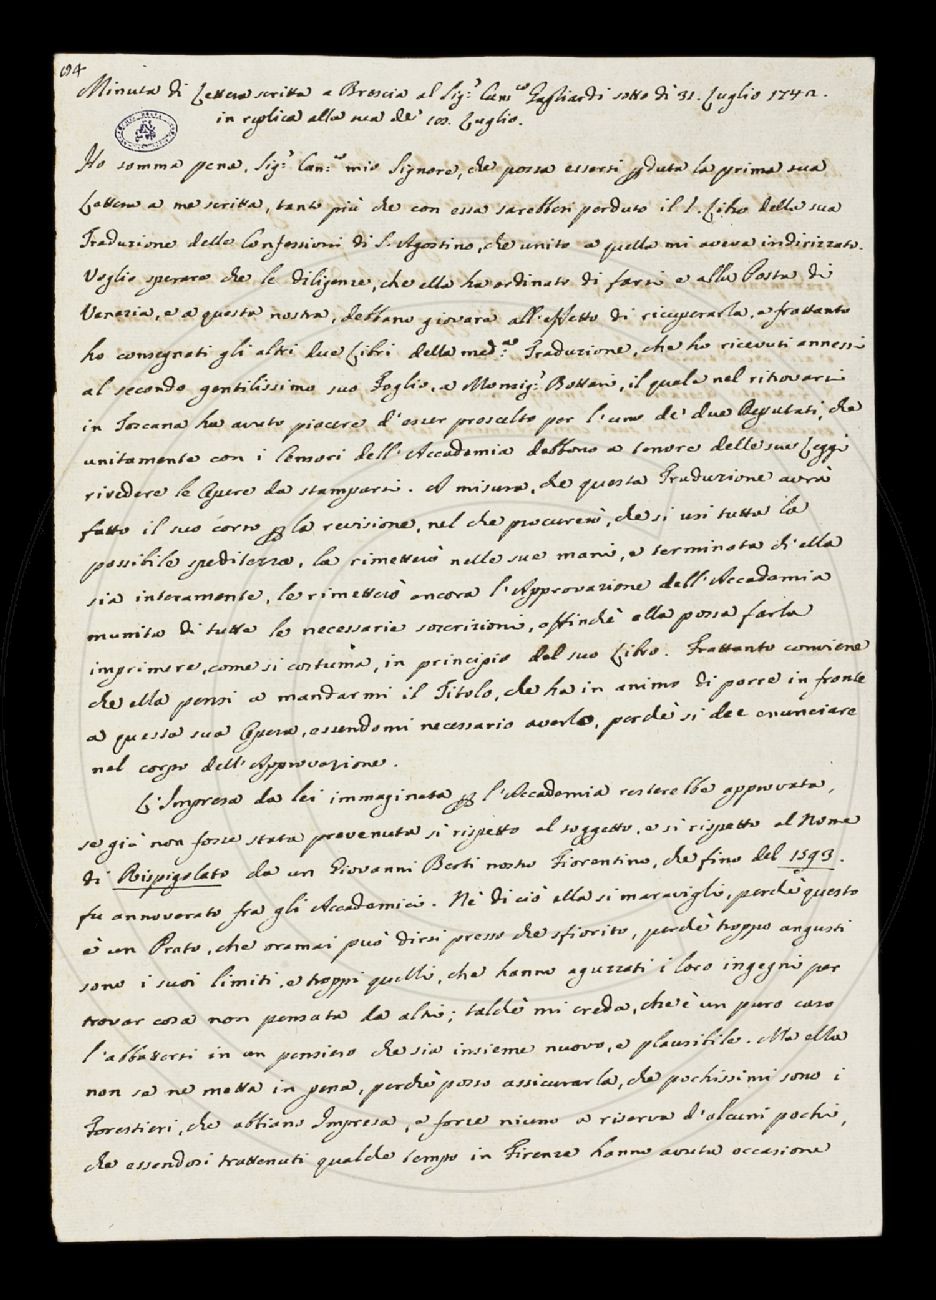 194
Minuta di Lettera scritta a Brescia al Sig.r Can.co Gagliardi sotto dì 31. Luglio 1742.
in replica alla sua de' 10. Luglio.
Ho somma pena, Sig.r Can.co mio Signore, che possa essersi pduta la prima sua
Lettera a me scritta, tanto più che con essa sarebbesi perduto il I. Libro della sua
Traduzione delle Confessioni di S. Agostino, che unito a quella mi aveva indirizzato.
Voglio sperare che le diligenze, che ella ha ordinato di farsi e alla Posta di
Venezia, e a questa nostra, debbano giovare all'effetto di ricuperarla, e frattanto
ho consegnati gli altri due Libri della med.ma Traduzione, che ho ricevuti annessi
al secondo gentilissimo suo Foglio, a Monsig.r Bottari, il quale nel ritrovarsi
in Toscana ha avuto piacere d'esser proscelto per l'uno de' due Deputati, che
unitamente con i Censori dell'Accademia debbono a tenore delle sue Leggi
rivedere le Opere da stamparsi. A misura, che questa Traduzione avrà
fatto il suo corso p la revisione, nel che procurerò, che si usi tutta la
possibile speditezza, la rimetterò nelle sue mani, e terminata ch'ella
sia interamente, le rimetterò ancora l'Approvazione dell'Accademia
munita di tutte le necessarie soscrizioni, affinchè ella possa farla
imprimere, come si costuma, in principio del suo Libro. Frattanto conviene
che ella pensi a mandarmi il Titolo, che ha in animo di porre in fronte
a questa sua Opera, essendomi necessario averlo, perchè si dee enunciare
nel corpo dell'Approvazione.
L'Impresa da lei immaginata p l'Accademia resterebbe approvata,
se già non fosse stata prevenuta sì rispetto al soggetto, e sì rispetto al Nome
di Rispigolato da un Giovanni Berti nostro Fiorentino, che fino del 1593.
fu annoverato fra gli Accademici. Nè di ciò ella si maravigli, perchè questo
è un Prato, che oramai può dirsi presso che sfiorito, perchè troppo angusti
sono i suoi limiti, e troppi quelli, che hanno aguzzati i loro ingegni per
trovar cosa non pensata da altri; talchè mi creda, che è un puro caso
l'abbattersi in un pensiero che sia insieme nuovo, e plausibile. Ma ella
non se ne metta in pena, perchè posso assicurarla, che pochissimi sono i
Forestieri, che abbiano Impresa, e forse niuno a riserva d'alcuni pochi,
che essendosi trattenuti qualche tempo in Firenze hanno avuta occasione